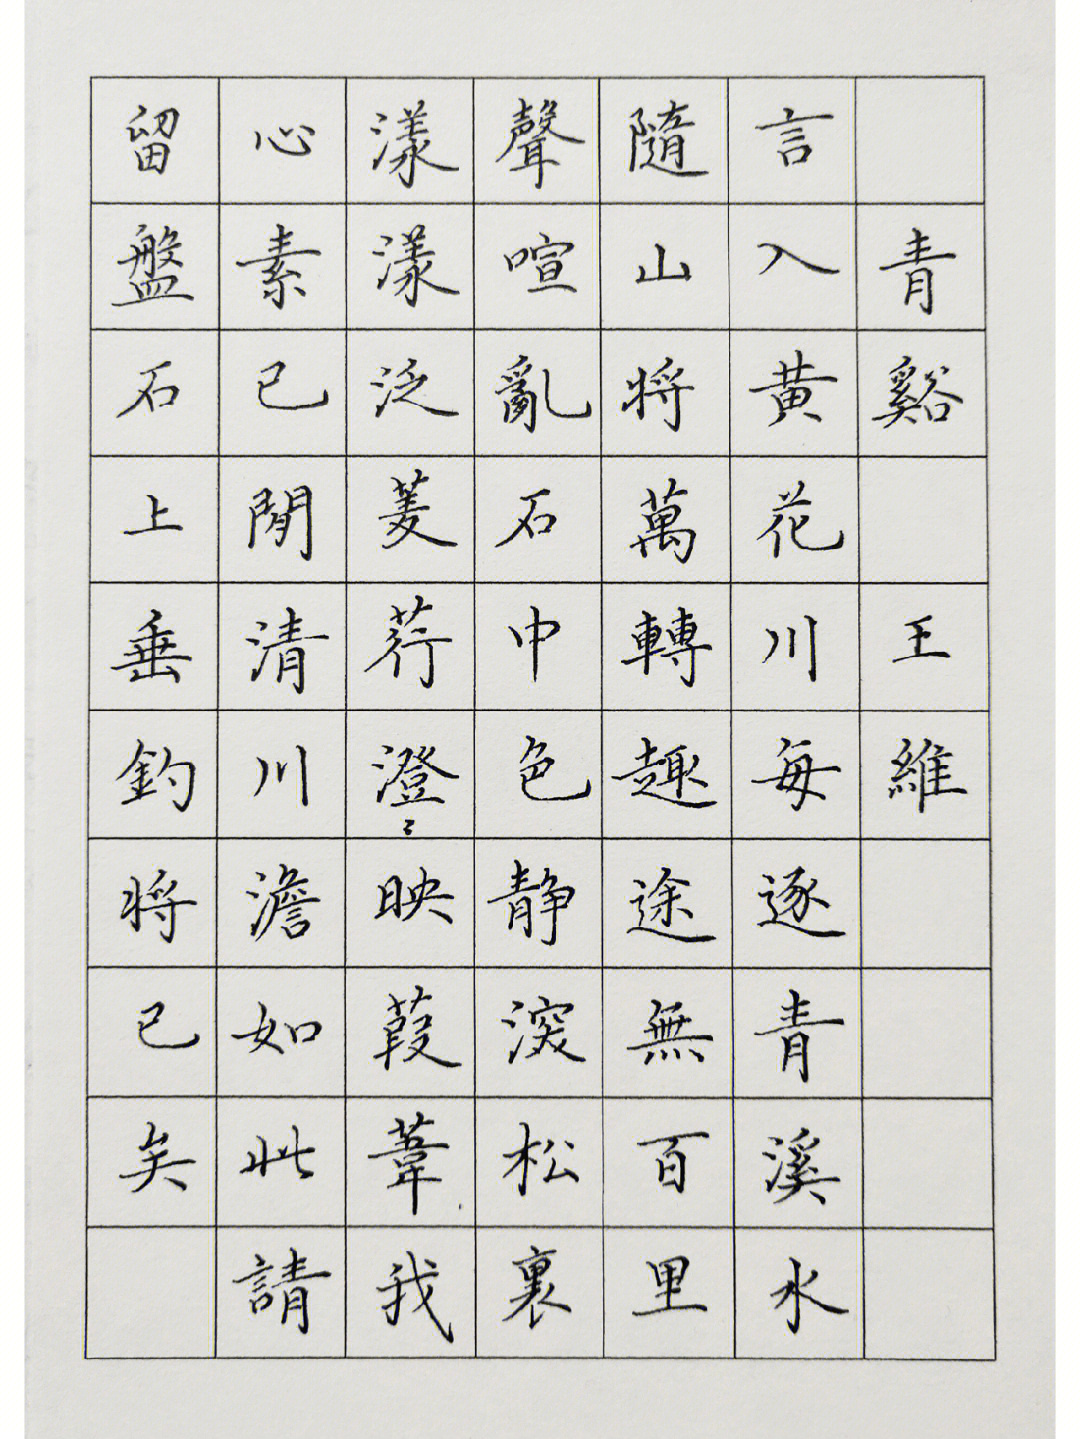 青谿 王維
言入黃花川每逐青溪水
隨山將萬轉趣途無百里
聲喧亂石中色静深松裏
漾漾泛菱荇澄〻映葭葦我
心素已閒清川澹如此請
留盤石上垂釣將已矣